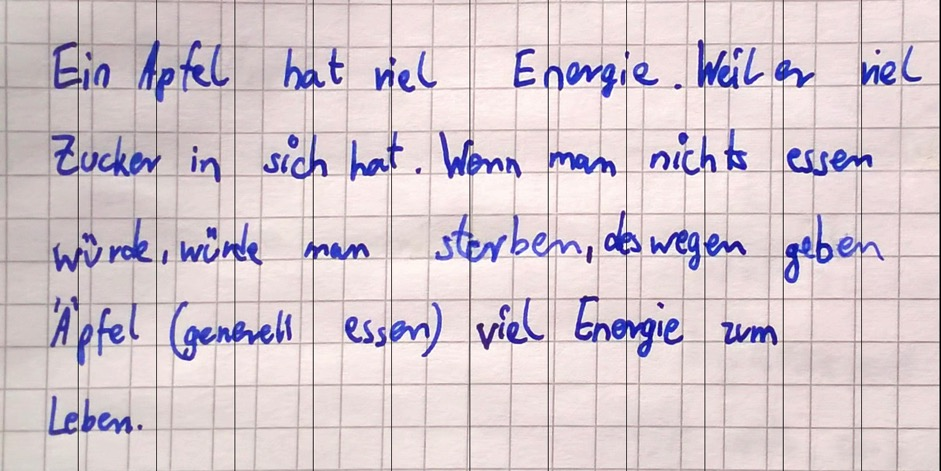 Ein Apfel hat viel Energie. Weil er viel
Zucker in sich hat. Wenn man nichts essen
würde, würde man sterben, deswegen geben
Äpfel (generell essen) viel Energie zum
Leben.